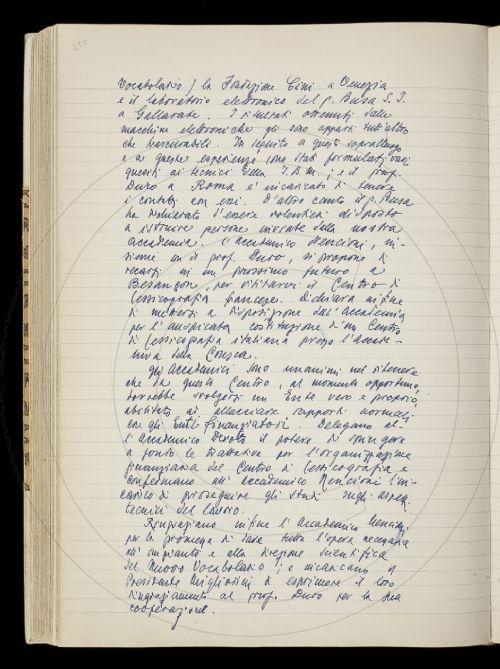 252
Vocabolario) la Fondazione Cini a Venezia
e il laboratorio elettronico del p. Busa S. I.
a Gallarate. I risultati ottenuti dalle
macchine elettroniche gli sono apparsi tutt'altro
che trascurabili. In seguito a questi sopralluoghi
e a queste esperienze sono stati formulati vari
quesiti ai tecnici della I.B.M.; e il prof.
Duro a Roma è incaricato di tenere
i contatti con essi. D'altro canto il p. Busa
ha dichiarato d'essere volentieri disposto
a istruire persone inviate dalla nostra
Accademia. L'Accademico Nencioni, in-
sieme con il prof. Duro, si propone di
recarsi in un prossimo futuro a
Besançon per visitarvi il Centro di
lessicografia francese. Dichiara infine
di mettersi a disposizione dell'Accademia
per l'auspicata costituzione d'un Centro
di lessicografia italiana presso l'Accade-
mia della Crusca.
Gli Accademici sono unanimi nel ritenere
che da questo Centro, al momento opportuno,
dovrebbe svolgersi un Ente vero e proprio,
abilitato ad allacciare rapporti normali
con gli Enti finanziatori. Delegano al-
l'Accademico Devoto il potere di svolgere
a fondo le trattative per l'organizzazione
finanziaria del Centro di lessicografia e
confermano all'Accademico Nencioni l'in-
carico di proseguire gli studi sugli aspetti
tecnici del lavoro.
Ringraziano infine l'Accademico Nencioni
per la promessa di dare tutta l'opera necessaria
all'impianto e alla direzione scientifica
del Nuovo Vocabolario; e incaricano il
Presidente Migliorini di esprimere il loro
ringraziamento al prof. Duro per la sua
cooperazione.